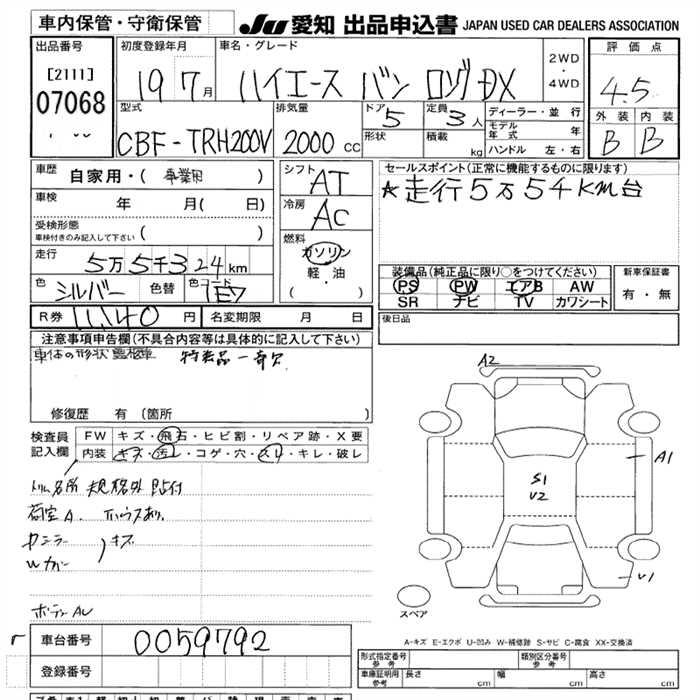 車内保管・守衛保管
JU 愛知 出品申込書 JAPAN USED CAR DEALERS ASSOCIATION
出品番号
[2111]
07068
初度登録年月
19 7月
車名・グレード
ハイエース バン ロング DX
2WD
・
4WD
評価点
4.5
外装 内装
B B
型式
CBF-TRH200V
排気量
2000 CC
ドア
5
形状
定員
3人
積載
kg
ディーラー・並行
モデル年式 年
ハンドル 左・右
車歴
自家用・( 事業用 )
車検 年 月( 日)
受検形態
車検付きのみ記入して下さい ( )
走行
5万5千324km
色 シルバー 色替 色コード 1E7
シフト
AT
冷房
AC
燃料
ガソリン
軽・油
( )
セールスポイント(正常に機能するものに限ります)
☆走行5万5千KM台
装備品(純正品に限り○をつけてください)
PS PW エアB AW
SR ナビ TV カワシート
新車保証書
有・無
R券 11,140 円 名変期限 月 日
後日品
注意事項申告欄(不具合内容等は具体的に記入して下さい)
車体の形状 特装品一部欠
修復歴 有 (箇所 )
検査員
記入欄
FW キズ・飛石・ヒビ割・リペア跡・X要
内装 キズ・汚レ・コゲ・穴・スレ・キレ・破レ
規格外 貼付
荷室A.
キズ
Wカバー
ボディ AU
A2
A1
S1
U2
U1
スペア
A-キズ E-エクボ U-凹み W-補修跡 S-サビ C-腐食 XX-交換済
車台番号 0059792
登録番号
型式指定番号 参考
類別区分番号 参考
車庫証明用 参考 長さ cm 幅 cm 高さ cm